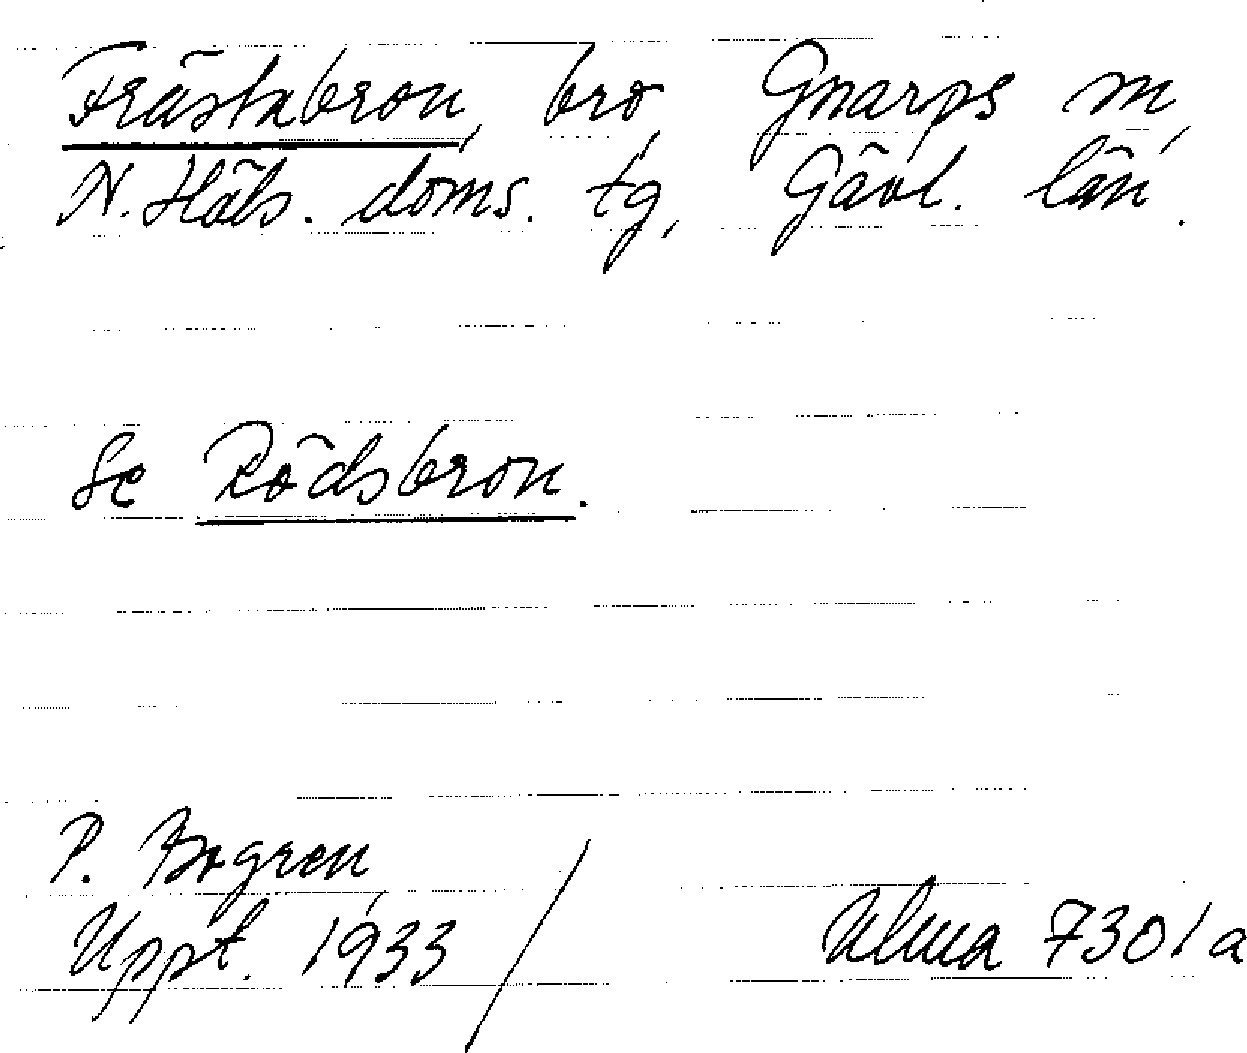 Frästabron, bro, Gnarps sn,
N. Häls. doms. tg, Gävl. län.
Se Rödsbron.
P. Bogren,
Uppt. 1933 / Ulma 7301a